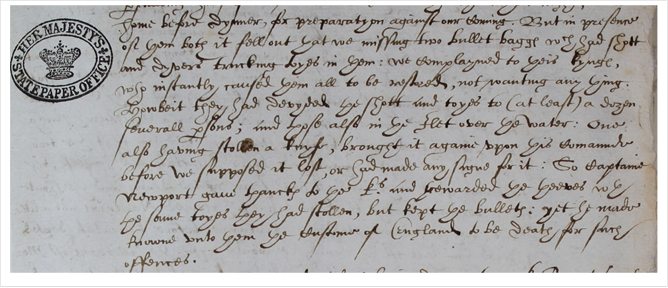 HER MAJESTY'S
STATE PAPER OFFICE
some before dynner, for preparatyon against our coming. But in presence
of them both it fell out that we missing two bullet baggs wch had shott
and dyvers trucking toyes in them: we complayned to theis kyngs,
who instantly caused them all to be restored, not wanting any thing.
Howbeit they had devyded the shott and toyes to (at least) a dozen
severall psons; and those also in the Ilet over the water: One
also having stollen a knyfe, brought it againe upon this comaunde
before we supposed it lost, or had made any signe for it: So Captaine
Newport gave thancks to the ks and rewarded the theeves wth
the same toyes they had stollen, but kept the bullets: yet he made
knowne unto them the custome of England to be death for such
offences.